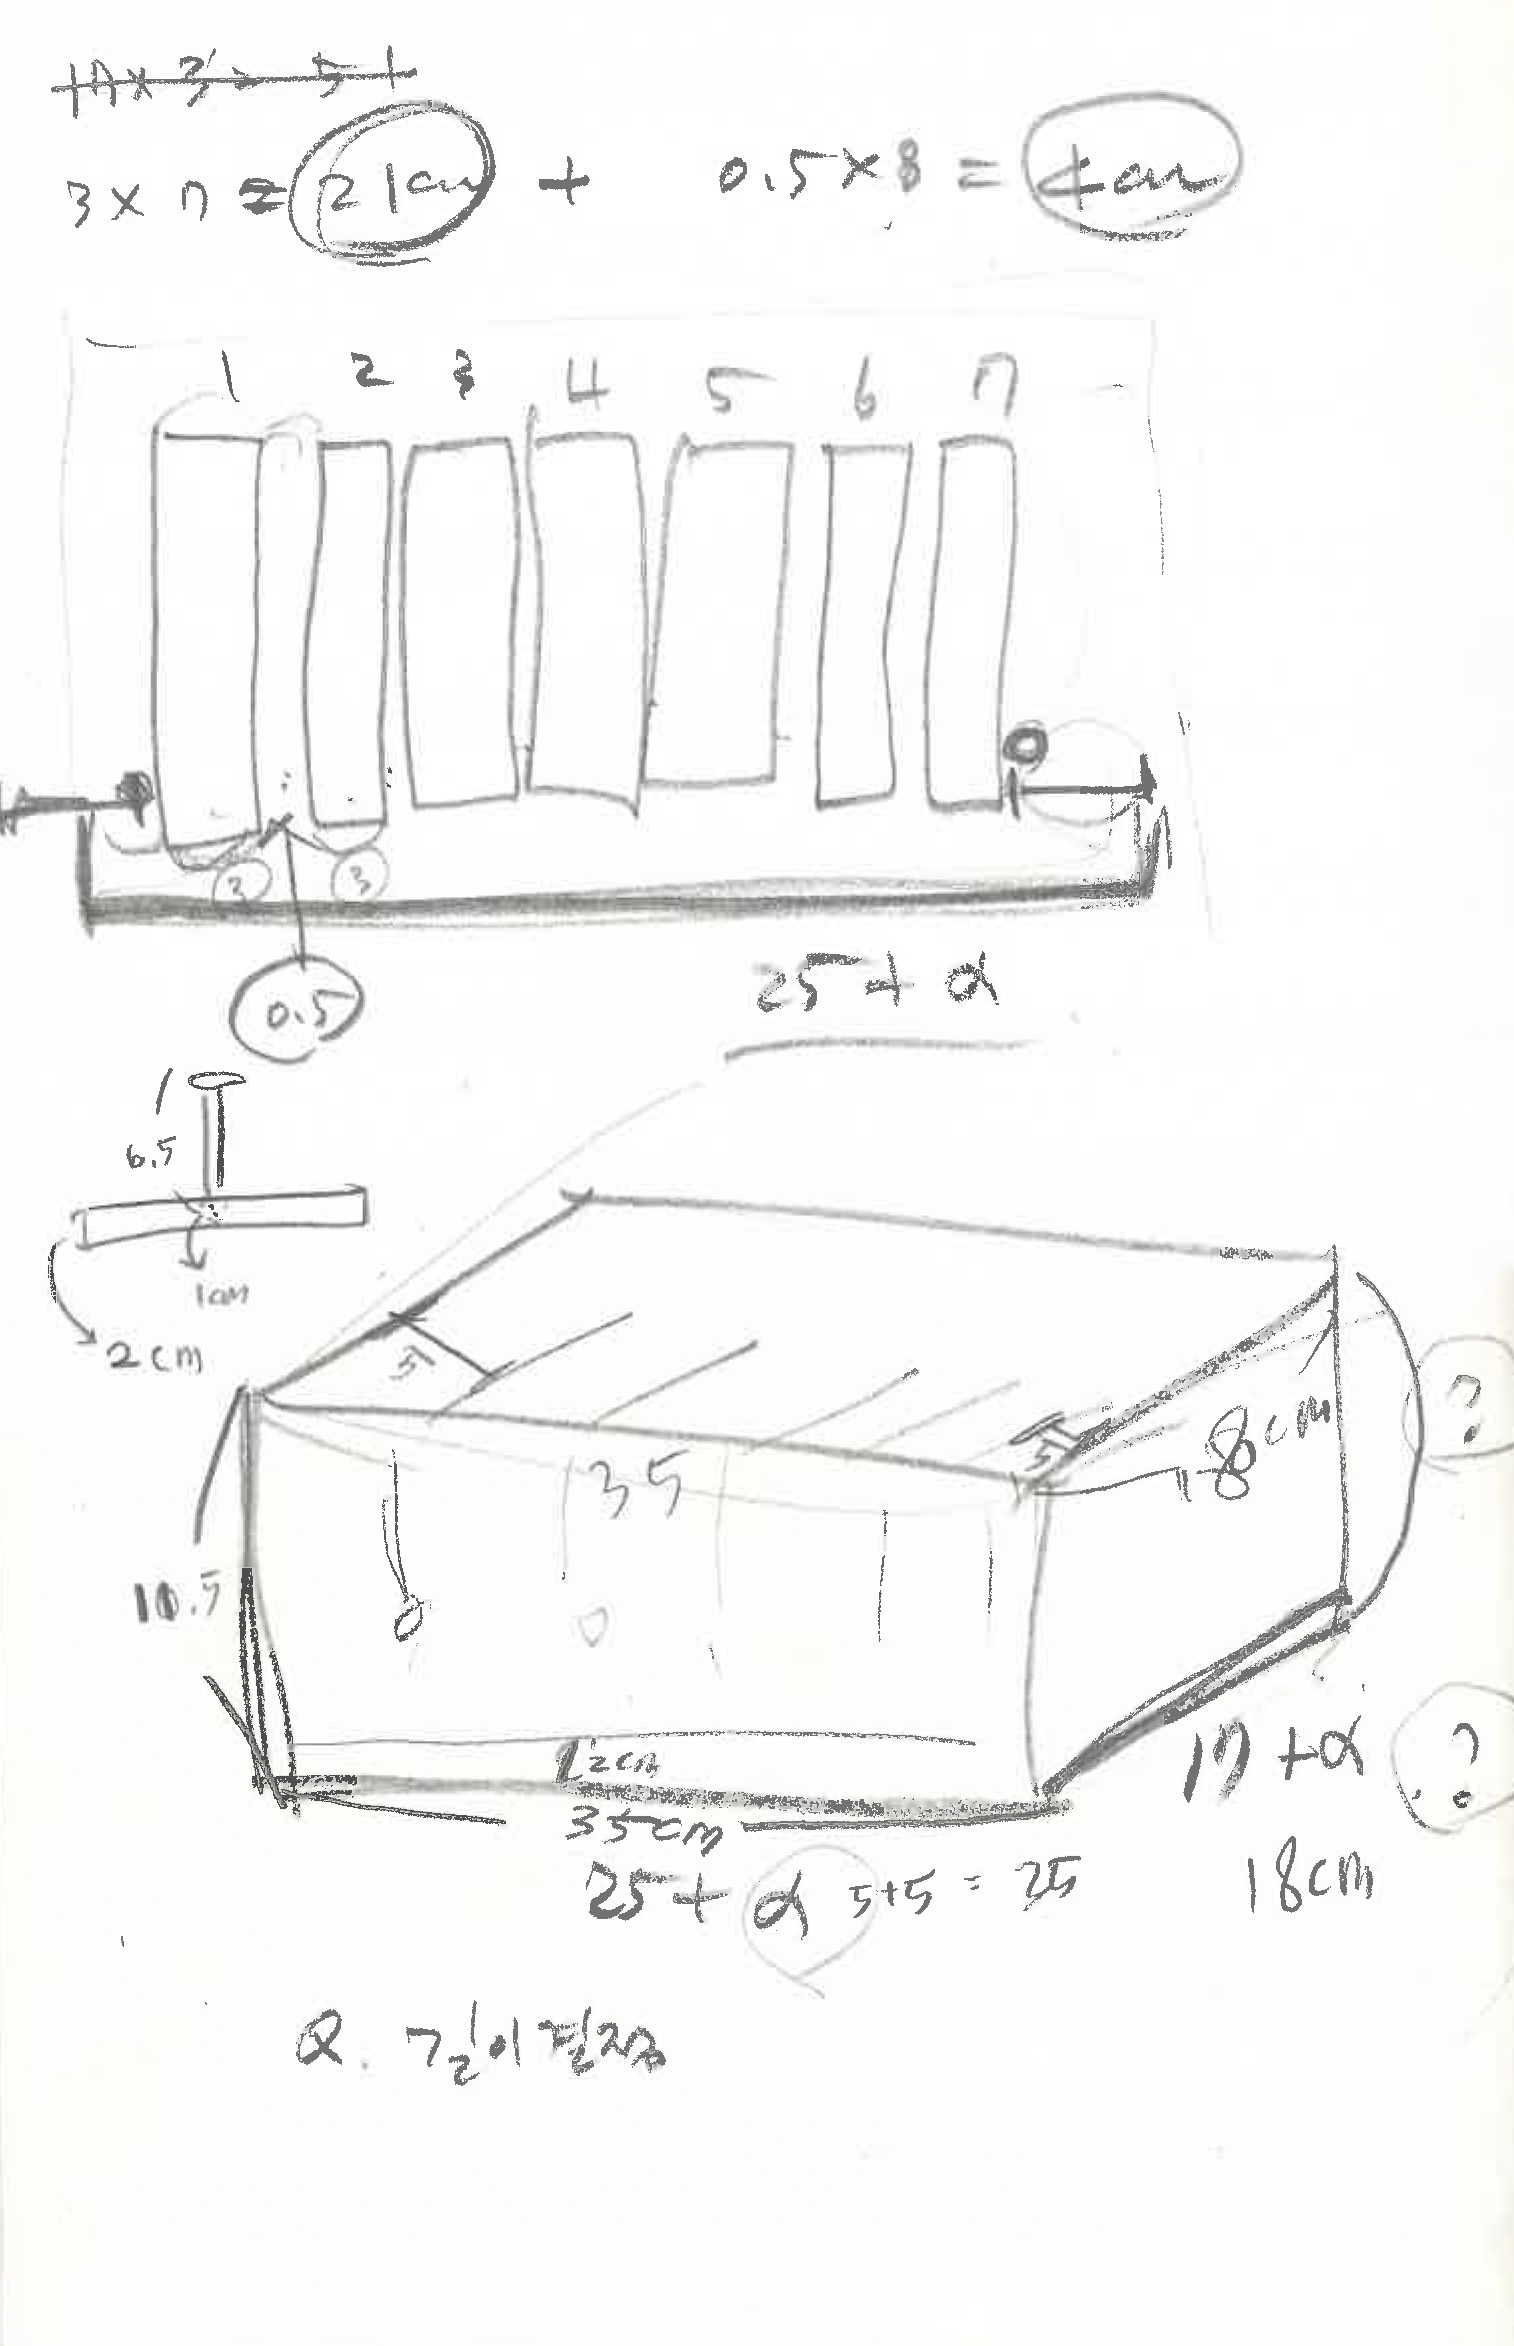 17×3=51
3×7=21cm + 0.5×8=4cm
1 2 3 4 5 6 7
2 3
0.5
25+α
6.5
1cm
2cm
5
35
5
18cm
?
10.5
12cm
35cm
17+α ?
25+α 5+5=25
18cm
Q. 깊이결정